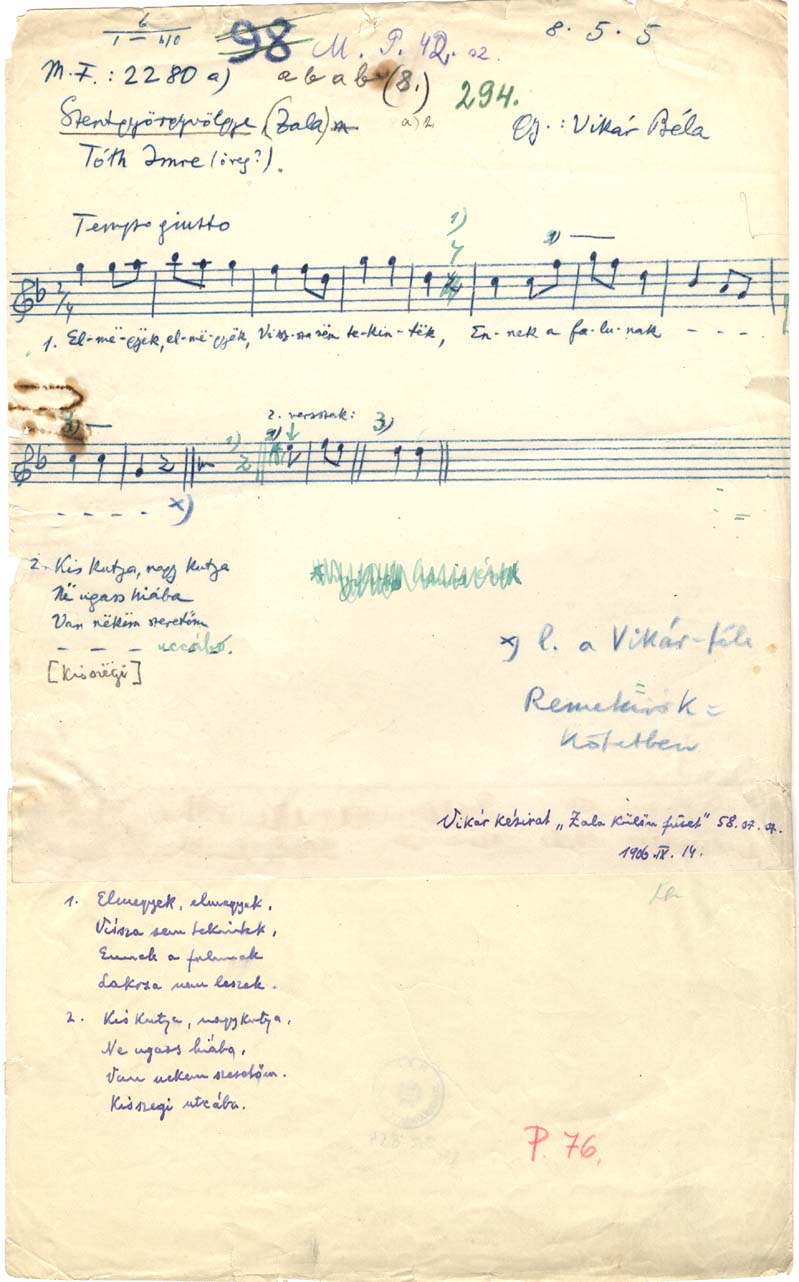 98 M. P. 42. sz. 8. 5. 5
M.F.: 2280 a) a b a b (8.) 294.
Szentgyörgyvölgye (Zala) Gy.: Vikár Béla
Tóth Imre (öreg?).
Tempo giusto
1)
2)
2/4
1. El-më-gyëk, el-më-gyëk, Visz-sza sëm te-kin-tëk, En-nek a fa-lu-nak - - -
3) 2. versszak: 3)
1) 2)
- - - - x)
2. Kis kutya, nagy kutya
Në ugass hiába
Van nékëm szeretőm
- - - uccábo.
[Kisszëgi]
x) l. a Vikár-féle
Remekírók =
kötetben
Vikár kézirat „Zala külön füzet" 58. sz. sz.
1906 IX. 14.
1. Elmegyek, elmegyek,
Vissza sem tekintek,
Ennek a falunak
Lakosa nem leszek.
2. Kis kutya, nagy kutya,
Ne ugass hiába,
Van nekem szeretőm.
Kisszegi utcába.
P. 76.